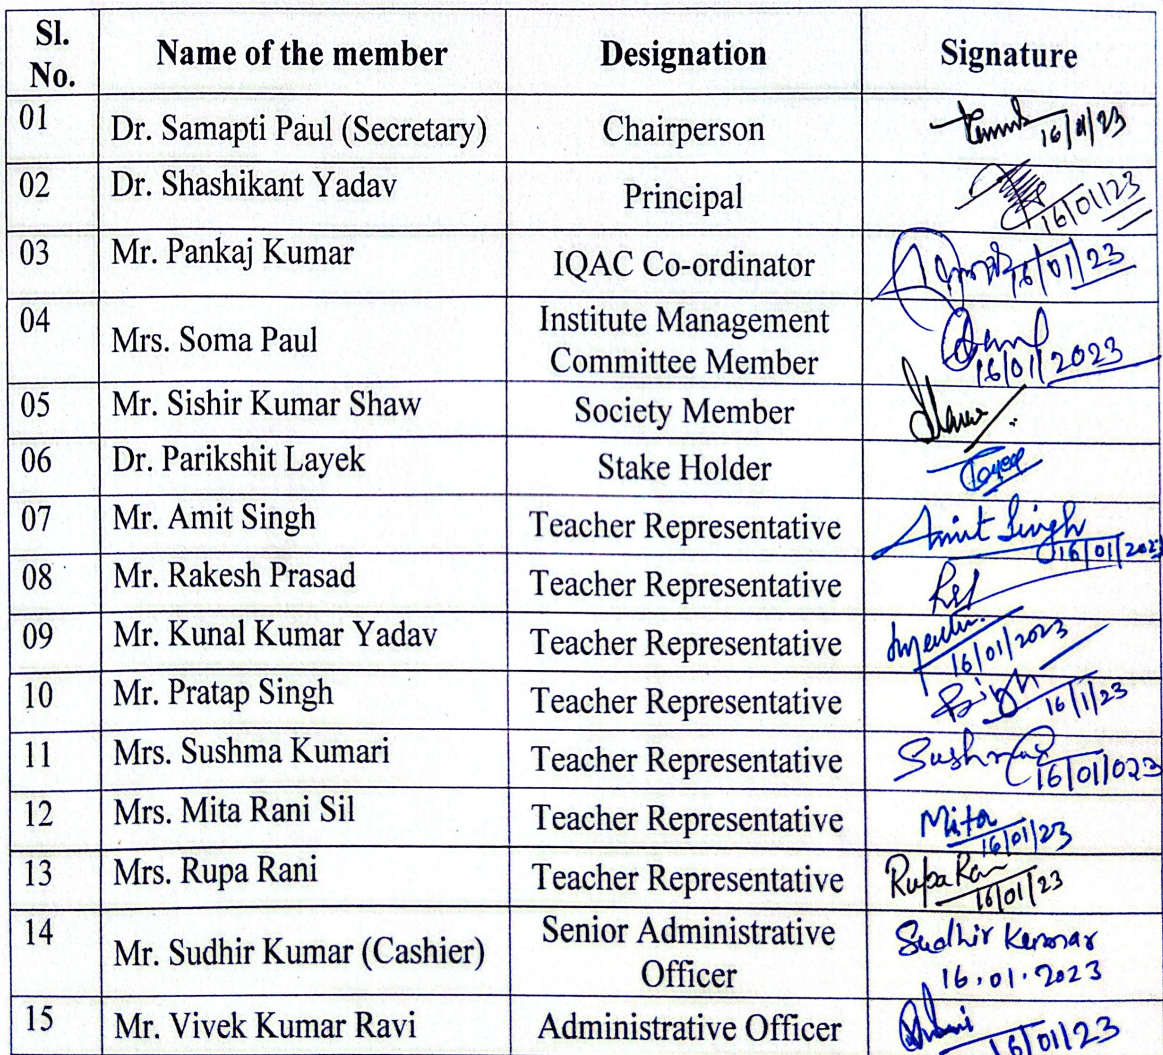 Sl. No. Name of the member Designation Signature
01 Dr. Samapti Paul (Secretary) Chairperson 16/01/23
02 Dr. Shashikant Yadav Principal 16/01/23
03 Mr. Pankaj Kumar IQAC Co-ordinator 16/01/23
04 Mrs. Soma Paul Institute Management Committee Member 16/01/2023
05 Mr. Sishir Kumar Shaw Society Member
06 Dr. Parikshit Layek Stake Holder
07 Mr. Amit Singh Teacher Representative Amit Singh 16/01/2023
08 Mr. Rakesh Prasad Teacher Representative
09 Mr. Kunal Kumar Yadav Teacher Representative 16/01/2023
10 Mr. Pratap Singh Teacher Representative 16/1/23
11 Mrs. Sushma Kumari Teacher Representative Sushma 16/01/023
12 Mrs. Mita Rani Sil Teacher Representative Mita 16/01/23
13 Mrs. Rupa Rani Teacher Representative Rupa Rani 16/01/23
14 Mr. Sudhir Kumar (Cashier) Senior Administrative Officer Sudhir Kumar 16.01.2023
15 Mr. Vivek Kumar Ravi Administrative Officer 16/01/23